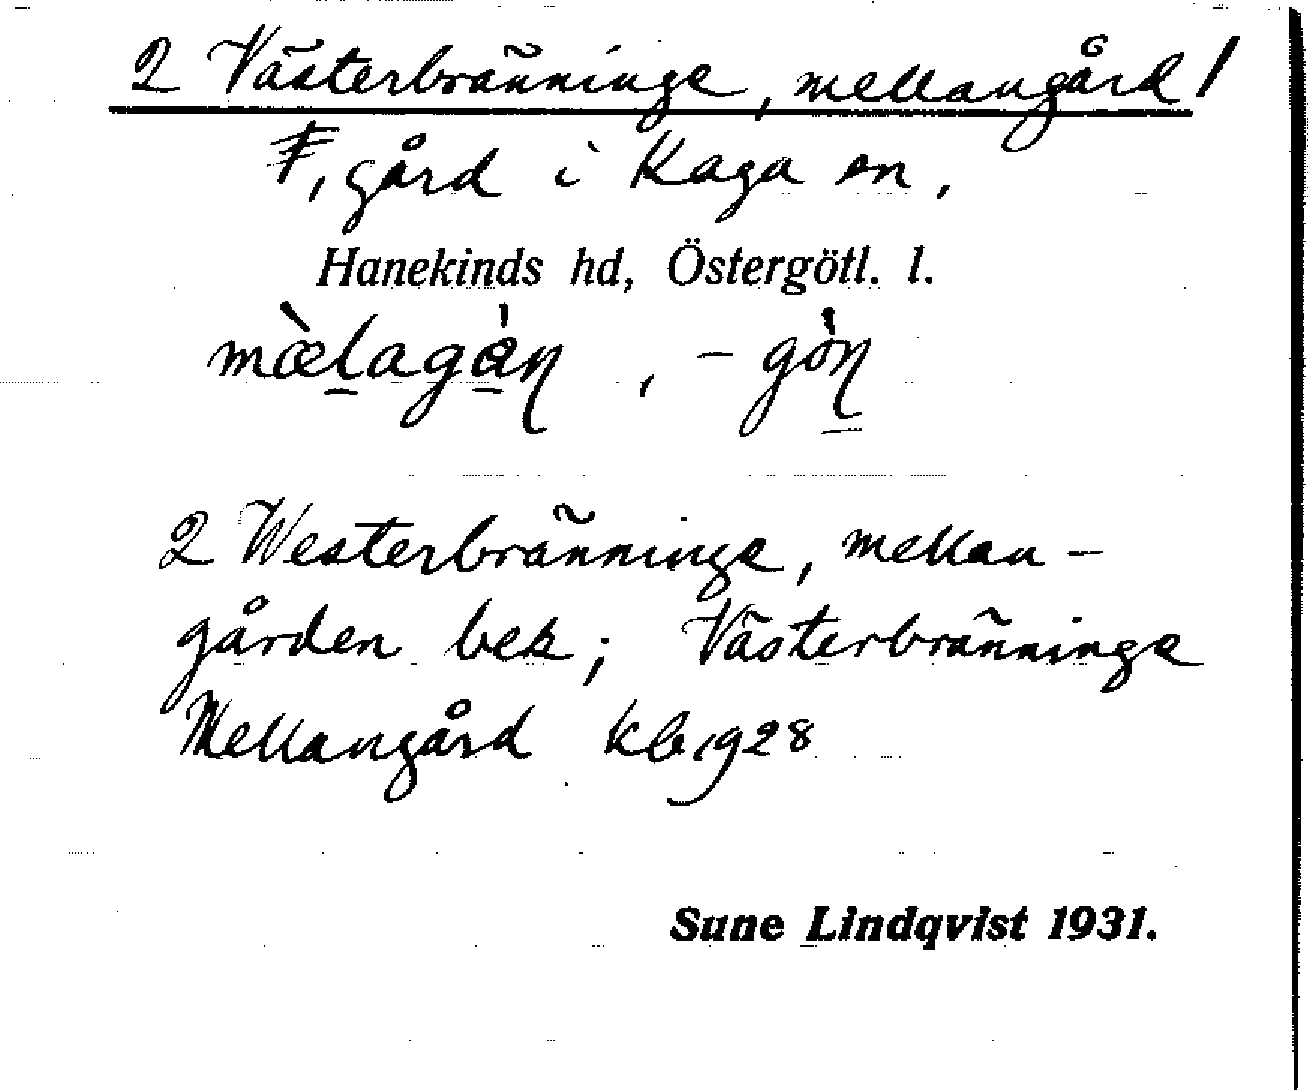 2 Västerbränninge, mellangård /
F, gård i Kaga sn,
Hanekinds hd, Östergötl. l.
mæ̀lagàn , – gòn
2 Westerbränninge, mellan –
gården bek; Västerbränninge
Mellangård kb 1928
Sune Lindqvist 1931.